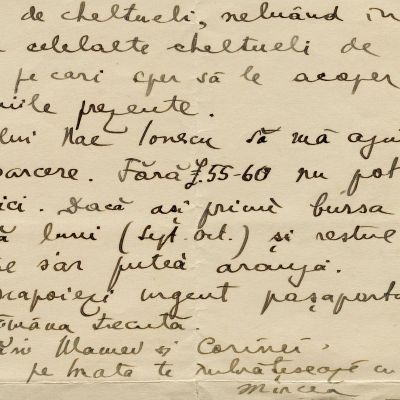 de cheltueli, neluând în
celelalte cheltueli de
pe cari sper să le acoper
prezente.
lui Nae Ionescu să mă aju
oarcere. Fără £.55-60 nu pot
ici. Dacă aşi primi bursa
ă luni (Sept. Oct.) şi restul
e s'ar putea aranja.
scapoiezi urgent paşaportu
ămâna trecută.
Mamei şi Corinei,
pe Tnata te îmbrăţişează cu
Mircea